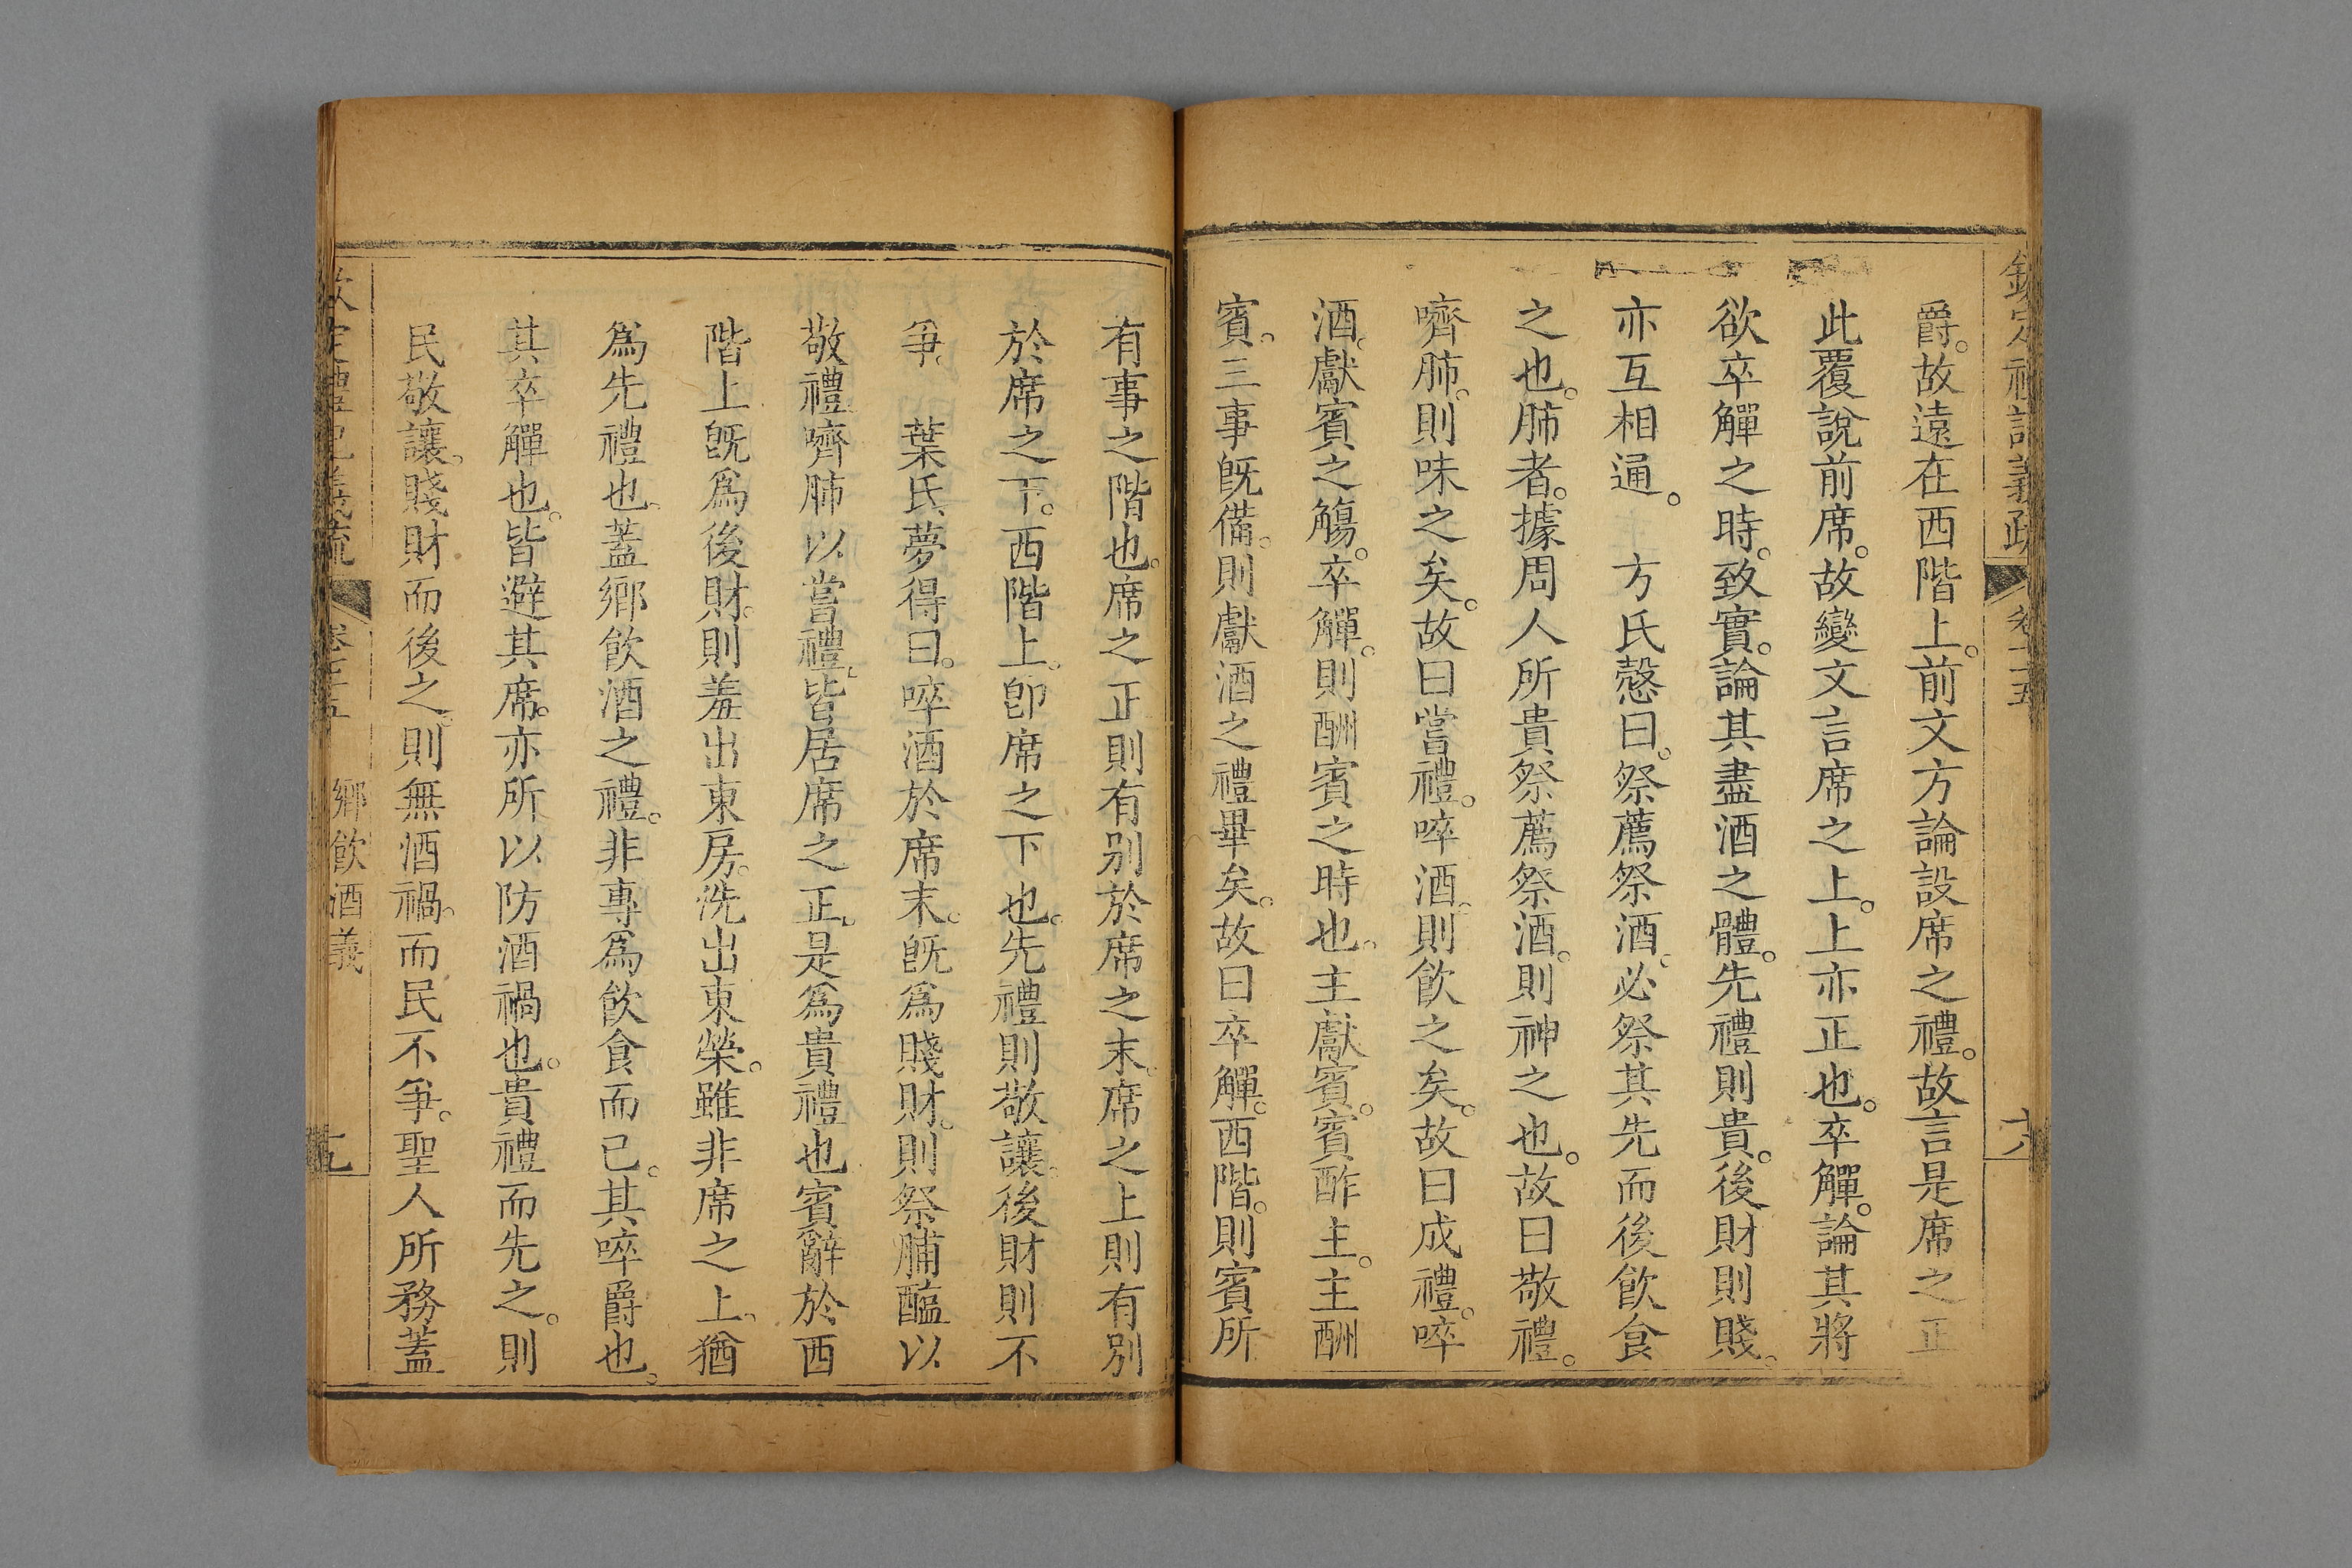 欽定禮記義疏 卷七十五 十八
爵。故遠在西階上。前文方論設席之禮。故言是席之正
此覆說前席。故變文言席之上。上亦正也。卒觶。論其將
欲卒觶之時。致實。論其盡酒之體。先禮則貴。後財則賤。
亦互相通。 方氏慤曰。祭薦祭酒。必祭其先而後飲食
之也。肺者。據周人所貴祭薦祭酒。則神之也。故曰敬禮。
嚌肺。則味之矣。故曰嘗禮。啐酒。則飲之矣。故曰成禮。啐
酒。獻賓之觴。卒觶。則酬賓之時也。主獻賓。賓酢主。主酬
賓。三事旣備。則獻酒之禮畢矣。故曰卒觶。西階。則賓所
有事之階也。席之正則有別於席之末。席之上則有別
於席之下。西階上。卽席之下也。先禮則敬讓。後財則不
爭。 葉氏夢得曰。啐酒於席末。旣爲賤財。則祭脯醢以
敬禮。嚌肺以嘗禮。皆居席之正。是爲貴禮也。賓辭於西
階上旣爲後財。則羞出東房。洗出東榮。雖非席之上。猶
爲先禮也。蓋鄉飲酒之禮。非專爲飲食而已。其啐爵也。
其卒觶也。皆避其席。亦所以防酒禍也。貴禮而先之。則
民敬讓。賤財而後之。則無酒禍。而民不爭。聖人所務蓋
欽定禮記義疏 卷七十五 鄉飲酒義 十九